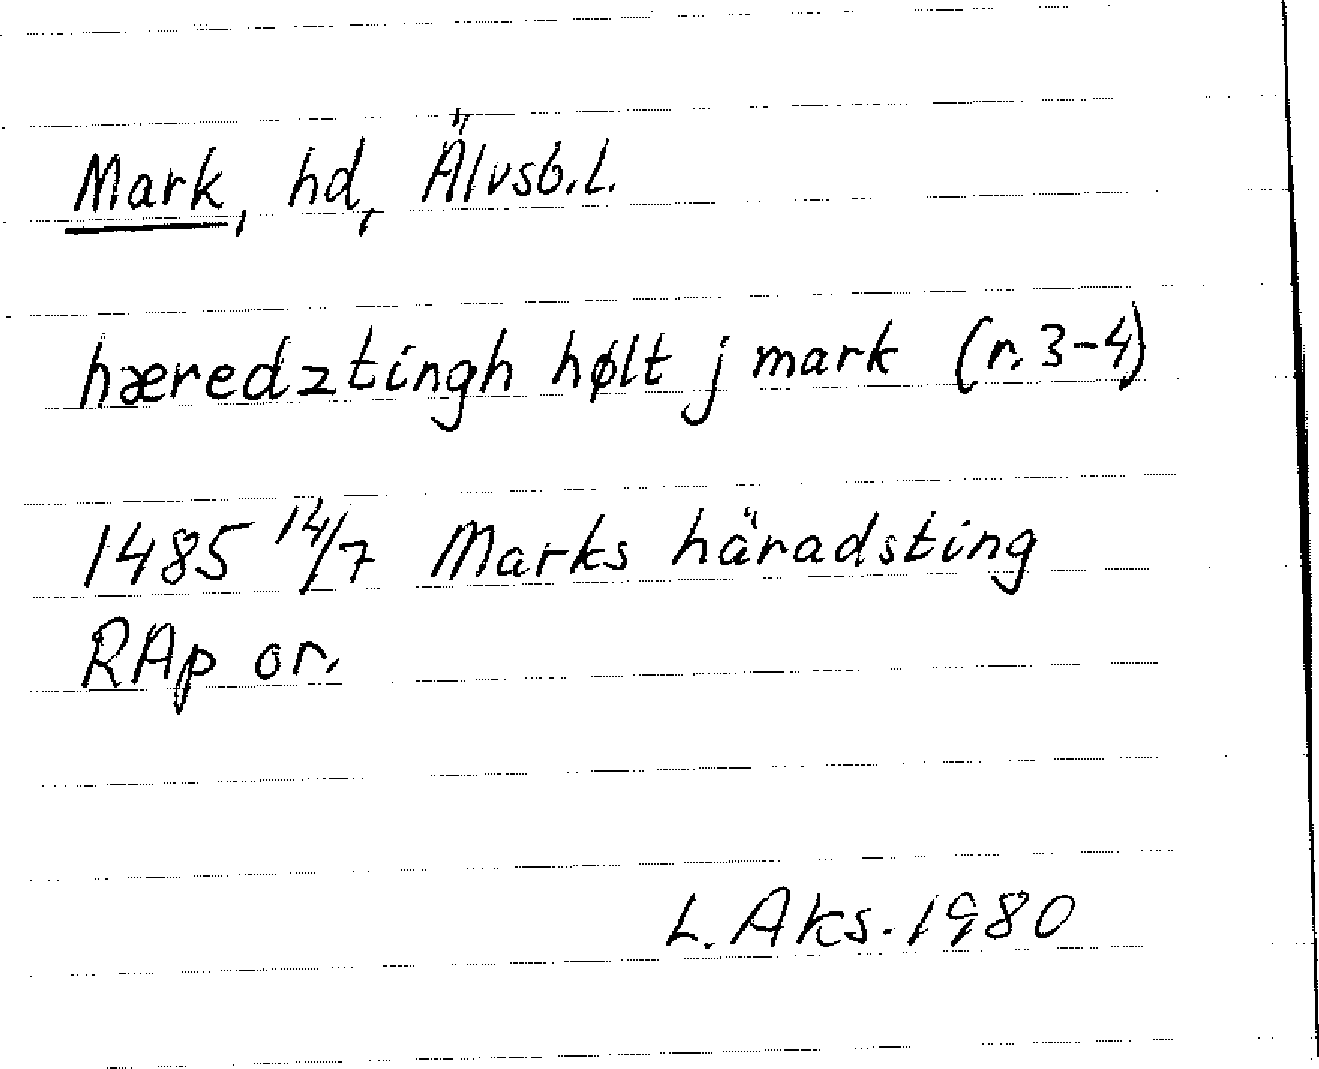 Mark, hd, Älvsb.l.
hæredztingh hølt j mark (r. 3-4)
1485 14/7 Marks häradsting
RAp or.
L. Aks. 1980